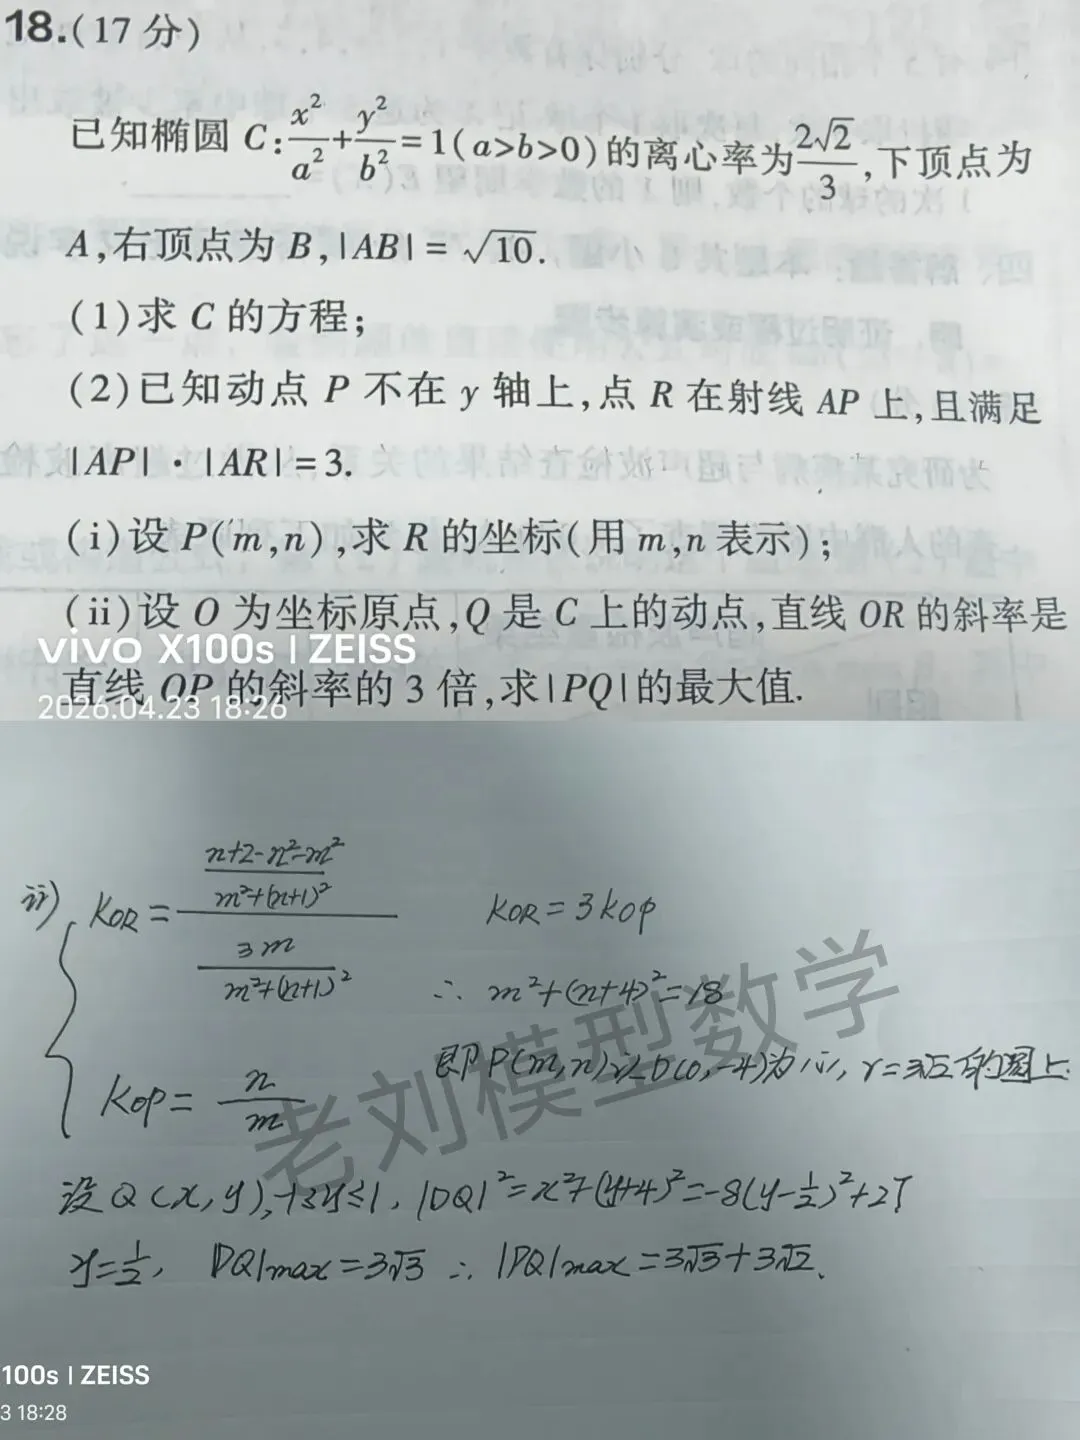 18.(17分)
已知椭圆 C:x²/a²+y²/b²=1(a>b>0)的离心率为2√2/3,下顶点为
A,右顶点为 B,|AB|=√10.
(1)求 C 的方程;
(2)已知动点 P 不在 y 轴上,点 R 在射线 AP 上,且满足
|AP|·|AR|=3.
(i)设 P(m,n),求 R 的坐标(用 m,n 表示);
(ii)设 O 为坐标原点,Q 是 C 上的动点,直线 OR 的斜率是
vivo X100s | ZEISS
直线 OP 的斜率的 3 倍,求|PQ|的最大值.
2026.04.23 18:26
ii) KOR = ((n+2-n²-m²)/(m²+(n+1)²))/(3m/(m²+(n+1)²))
KOR=3KOP
∴ m²+(n+4)²=18
即P(m,n)以D(0,-4)为心,r=3√2的圆上.
KOP= n/m
老刘模型数学
设Q(x,y),-1≤y≤1,|DQ|²=x²+(y+4)²=-8(y-1/2)²+27
y=1/2, |DQ|max=3√3 ∴ |PQ|max=3√3+3√2.
100s | ZEISS
3 18:28